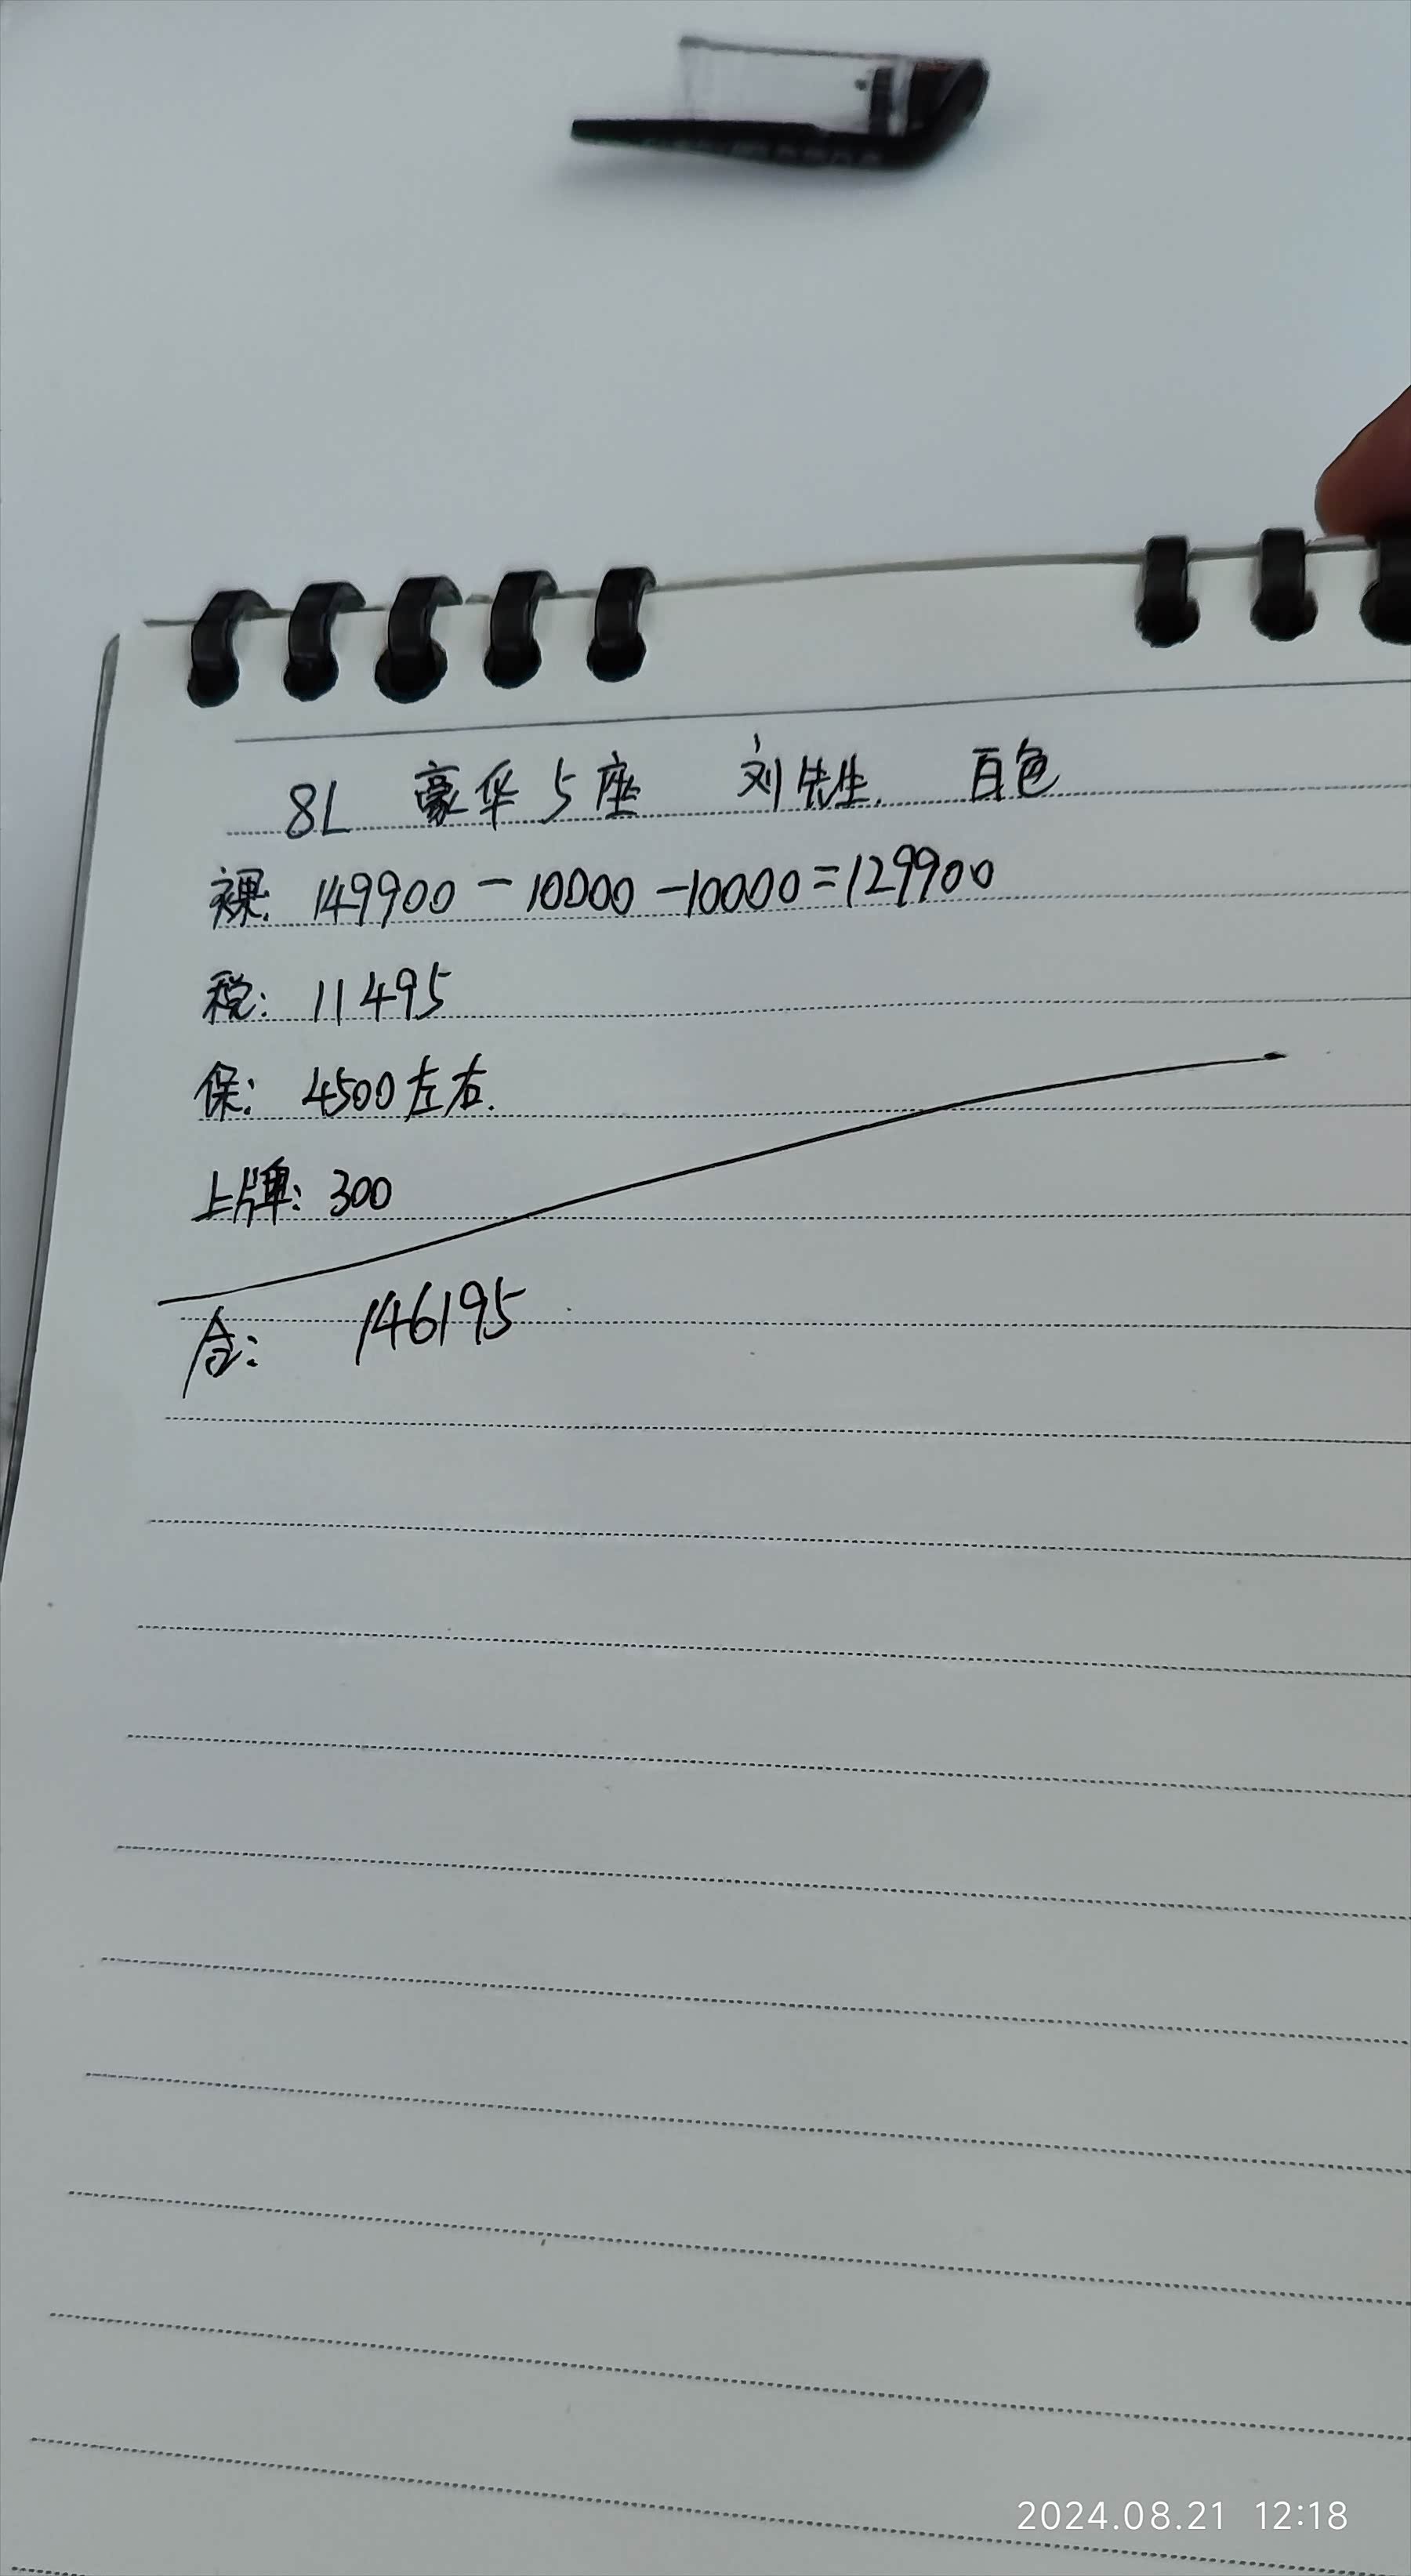 8L 豪华5座 刘先生. 百色
裸: 149900-10000-10000=129900
税: 11495
保: 4500左右.
上牌: 300
合: 146195
2024.08.21 12:18